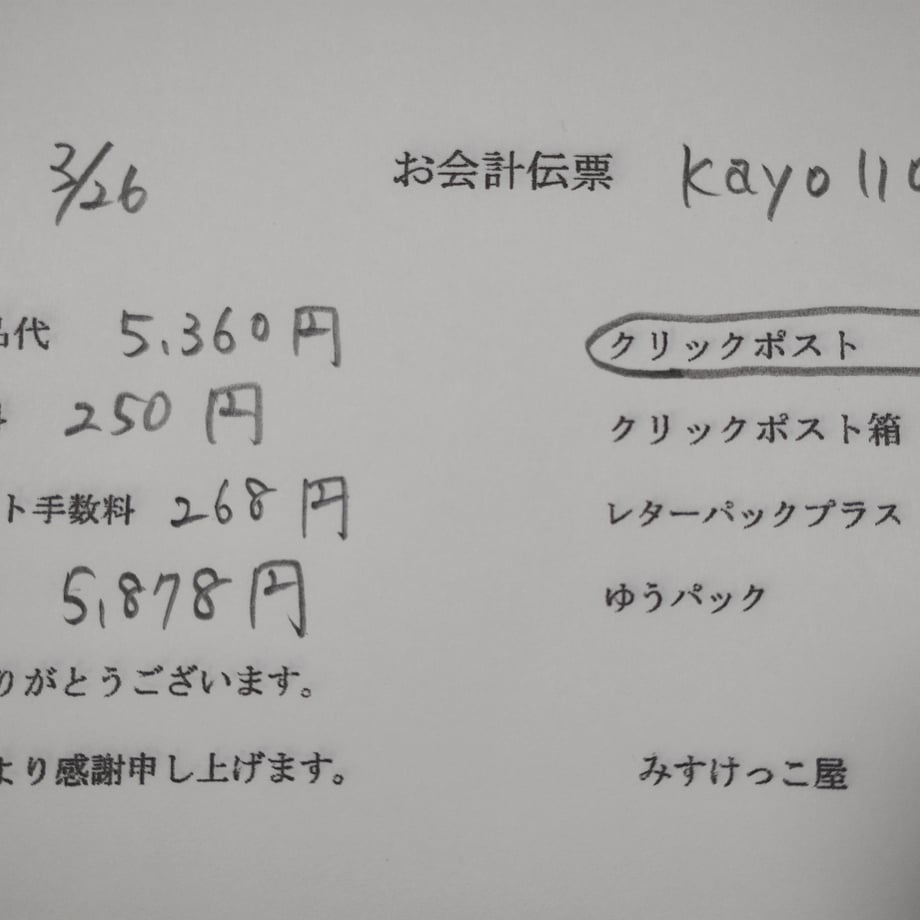 3/26 お会計伝票 kayo110
品代 5,360円 クリックポスト
料 250円 クリックポスト箱
ト手数料 268円 レターパックプラス
5,878円 ゆうパック
りがとうございます。
より感謝申し上げます。 みすけっこ屋